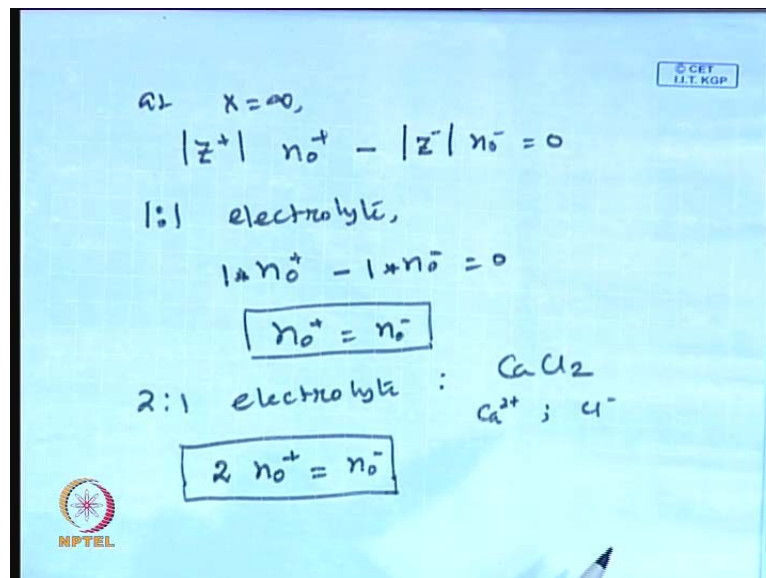 © CET
I.I.T. KGP
at x = ∞,
|z⁺| n₀⁺ - |z⁻| n₀⁻ = 0
1:1 electrolyte,
1 * n₀⁺ - 1 * n₀⁻ = 0
n₀⁺ = n₀⁻
2:1 electrolyte : CaCl2
Ca²⁺ ; Cl⁻
2 n₀⁺ = n₀⁻
NPTEL